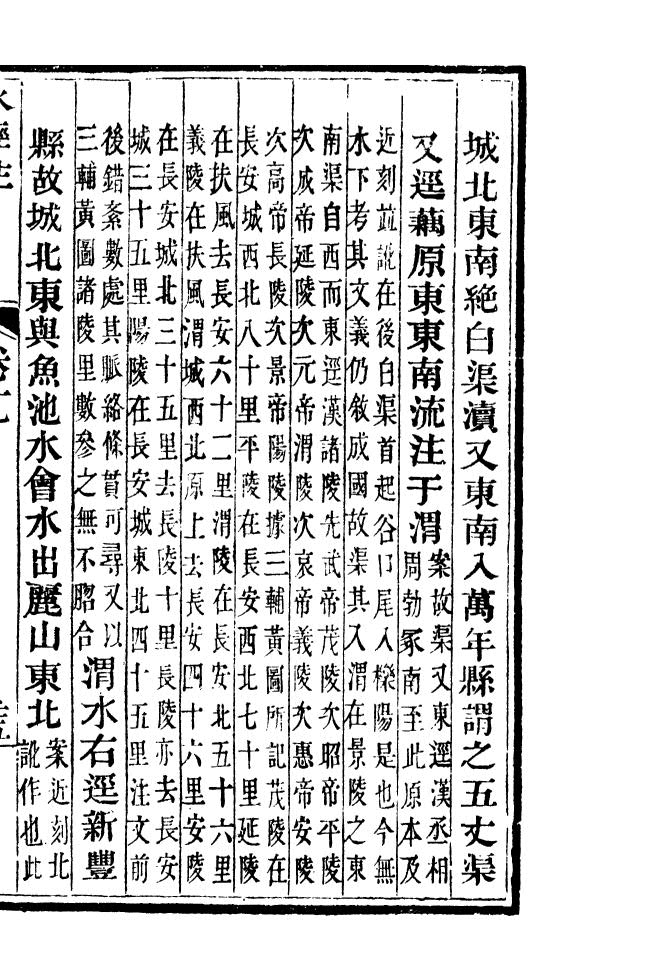 城北東南絶白渠瀆又東南入萬年縣謂之五丈渠
又逕藕原東東南流注于渭
案故渠又東逕漢丞相
周勃冢南至此原本及
近刻並訛在後白渠首起谷口尾入櫟陽是也今無
水下考其文義仍敘成國故渠其入渭在景陵之東
南渠自西而東逕漢諸陵先武帝茂陵次昭帝平陵
次成帝延陵次元帝渭陵次哀帝義陵次惠帝安陵
次高帝長陵次景帝陽陵據三輔黃圖所記茂陵在
長安城西北八十里平陵在長安西北七十里延陵
在扶風去長安六十二里渭陵在長安北五十六里
義陵在扶風渭城西北原上去長安四十六里安陵
在長安城北三十五里去長陵十里長陵亦去長安
城三十五里陽陵在長安城東北四十五里注文前
後錯紊數處其脈絡條貫可尋又以
三輔黃圖諸陵里數參之無不脗合
渭水右逕新豐
縣故城北東與魚池水會水出麗山東北
案近刻北
訛作也此